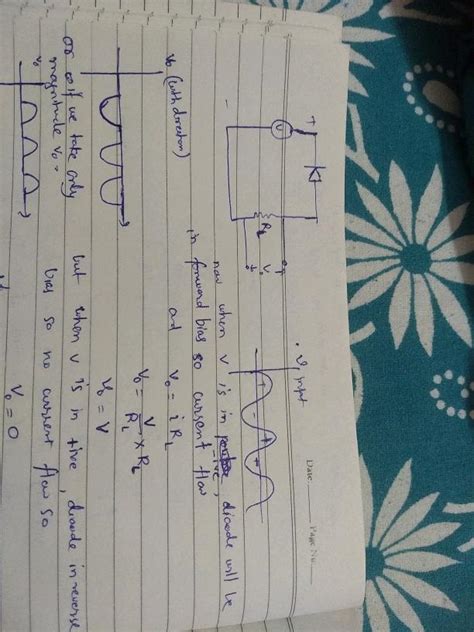 Date ____ Page No. ____
Vi input
+
V
-
RL
Vo
now when V is in -ive, diode will be
in forward bias so current flow
and Vo = i RL
Vo (with direction)
Vo = V/RL × RL
Vo = V
but when V is in +ive, diode in reverse
bias so no current flow so
Vo = 0
or if we take only
magnitude Vo =
Vo